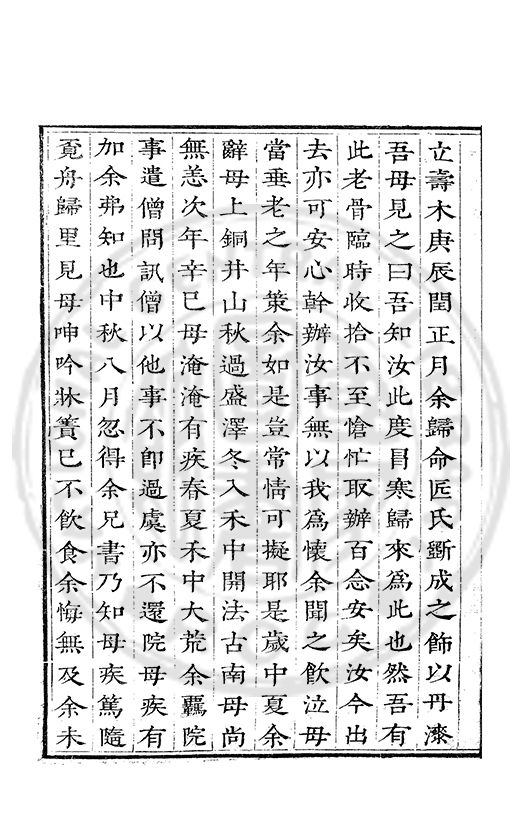 立壽木庚辰閏正月余歸命匠氏斵成之飾以丹漆
吾母見之曰吾知汝此度冐寒歸來爲此也然吾有
此老骨臨時收拾不至愴忙取辦百念安矣汝今出
去亦可安心幹辦汝事無以我爲懷余聞之飲泣母
當垂老之年策余如是豈常情可擬耶是歲中夏余
辭母上銅井山秋過盛澤冬入禾中開法古南母尚
無恙次年辛巳母淹淹有疾春夏禾中大荒余羈院
事遣僧問訊僧以他事不卽過虞亦不還院母疾有
加余弗知也中秋八月忽得余兄書乃知母疾篤隨
覔舟歸里見母呻吟牀簀已不飲食余悔無及余未